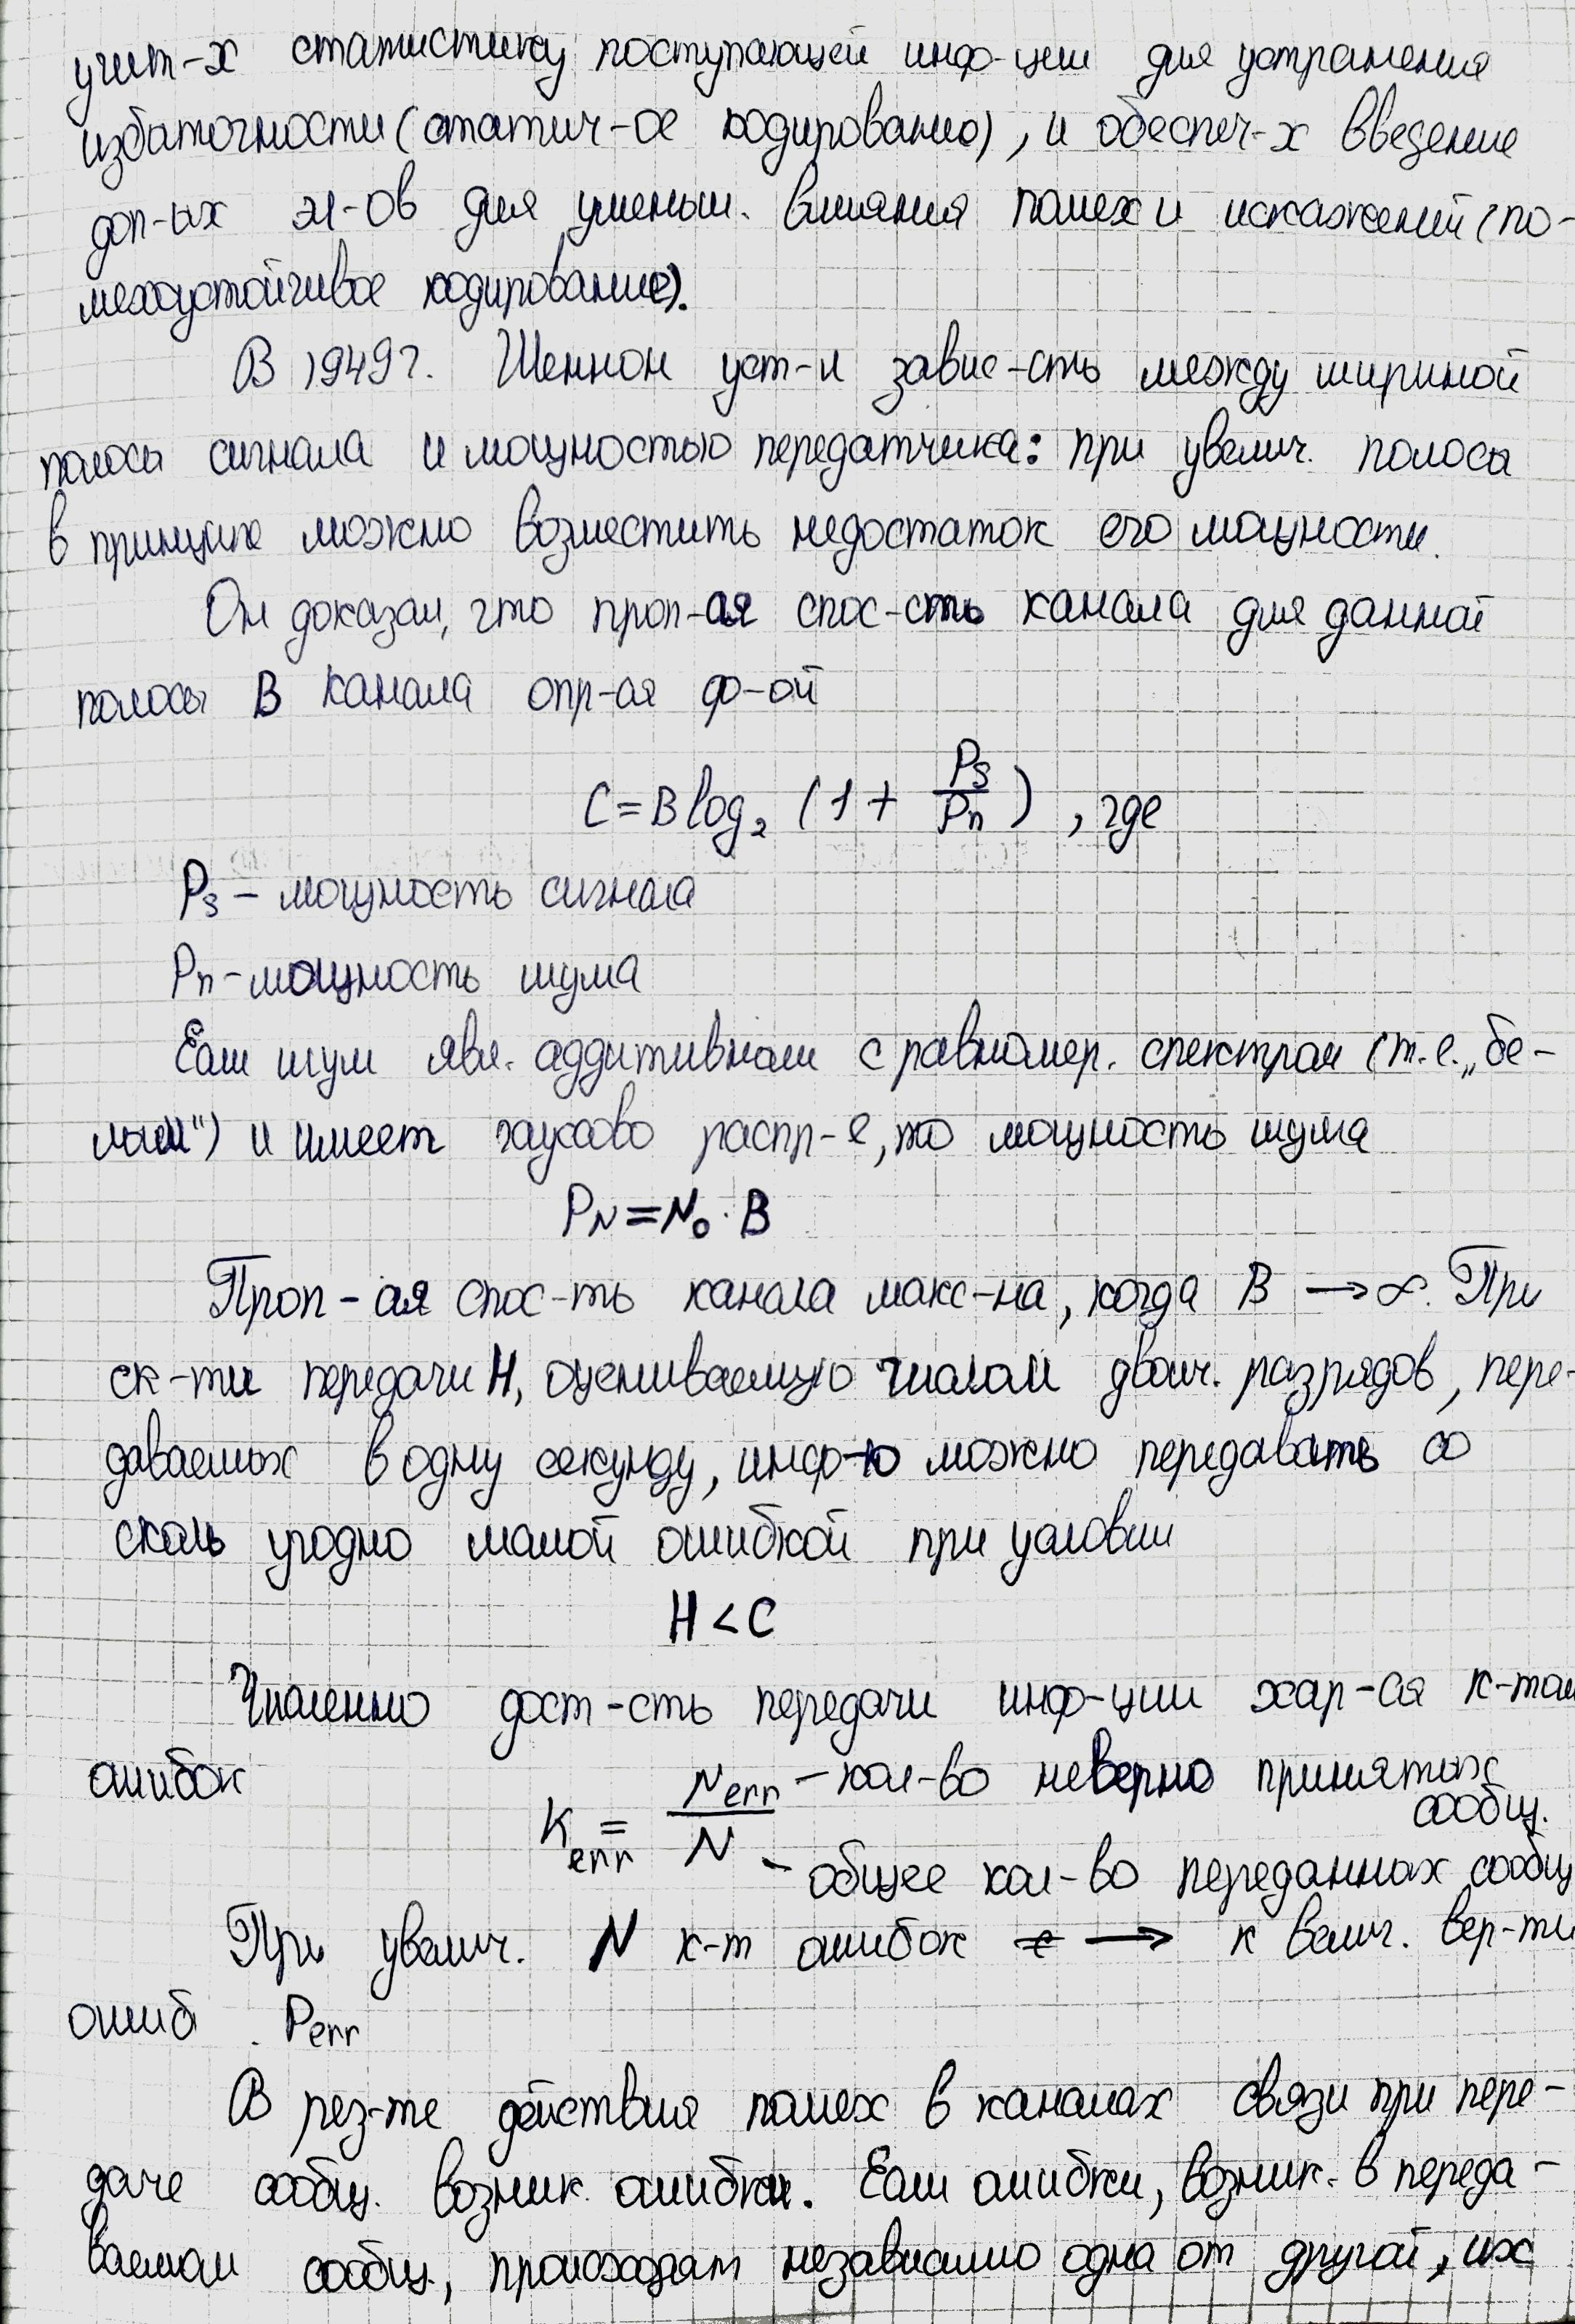 учит-х статистику поступающей инф-ции для устранения
избыточности (статич-ое кодирование), и обеспеч-х введение
доп-ых эл-ов для уменьш. влияния помех и искажений (по-
мехоустойчивое кодирование).
В 1949 г. Шеннон уст-л завис-сть между шириной
полосы сигнала и мощностью передатчика: при увелич. полосы
в принципе можно возместить недостаток его мощности.
Он доказал, что проп-ая спос-сть канала для данной
полосы B канала опр-ая ф-ой
C = B log₂ (1 + Ps/Pn) , где
Ps – мощность сигнала
Pn – мощность шума
Если шум явл. аддитивным с равномер. спектром (т.е. „бе-
лым") и имеет гауссово распр-е, то мощность шума
PN = N₀ · B
Проп-ая спос-ть канала макс-на, когда B → ∞. При
ск-ти передачи H, оцениваемую числом двоич. разрядов, пере-
даваемых в одну секунду, инф-ю можно передавать со
сколь угодно малой ошибкой при условии
H < C
Численно дост-сть передачи инф-ции хар-ая к-том
ошибок
K err = N err / N – кол-во неверно принятых сообщ.
– общее кол-во переданных сообщ
При увелич. N к-т ошибок → к велич. вер-ти
ошиб. Perr
В рез-те действия помех в каналах связи при пере-
даче сообщ. возник. ошибки. Если ошибки, возник. в переда-
ваемом сообщ., происходят независимо одна от другой, их